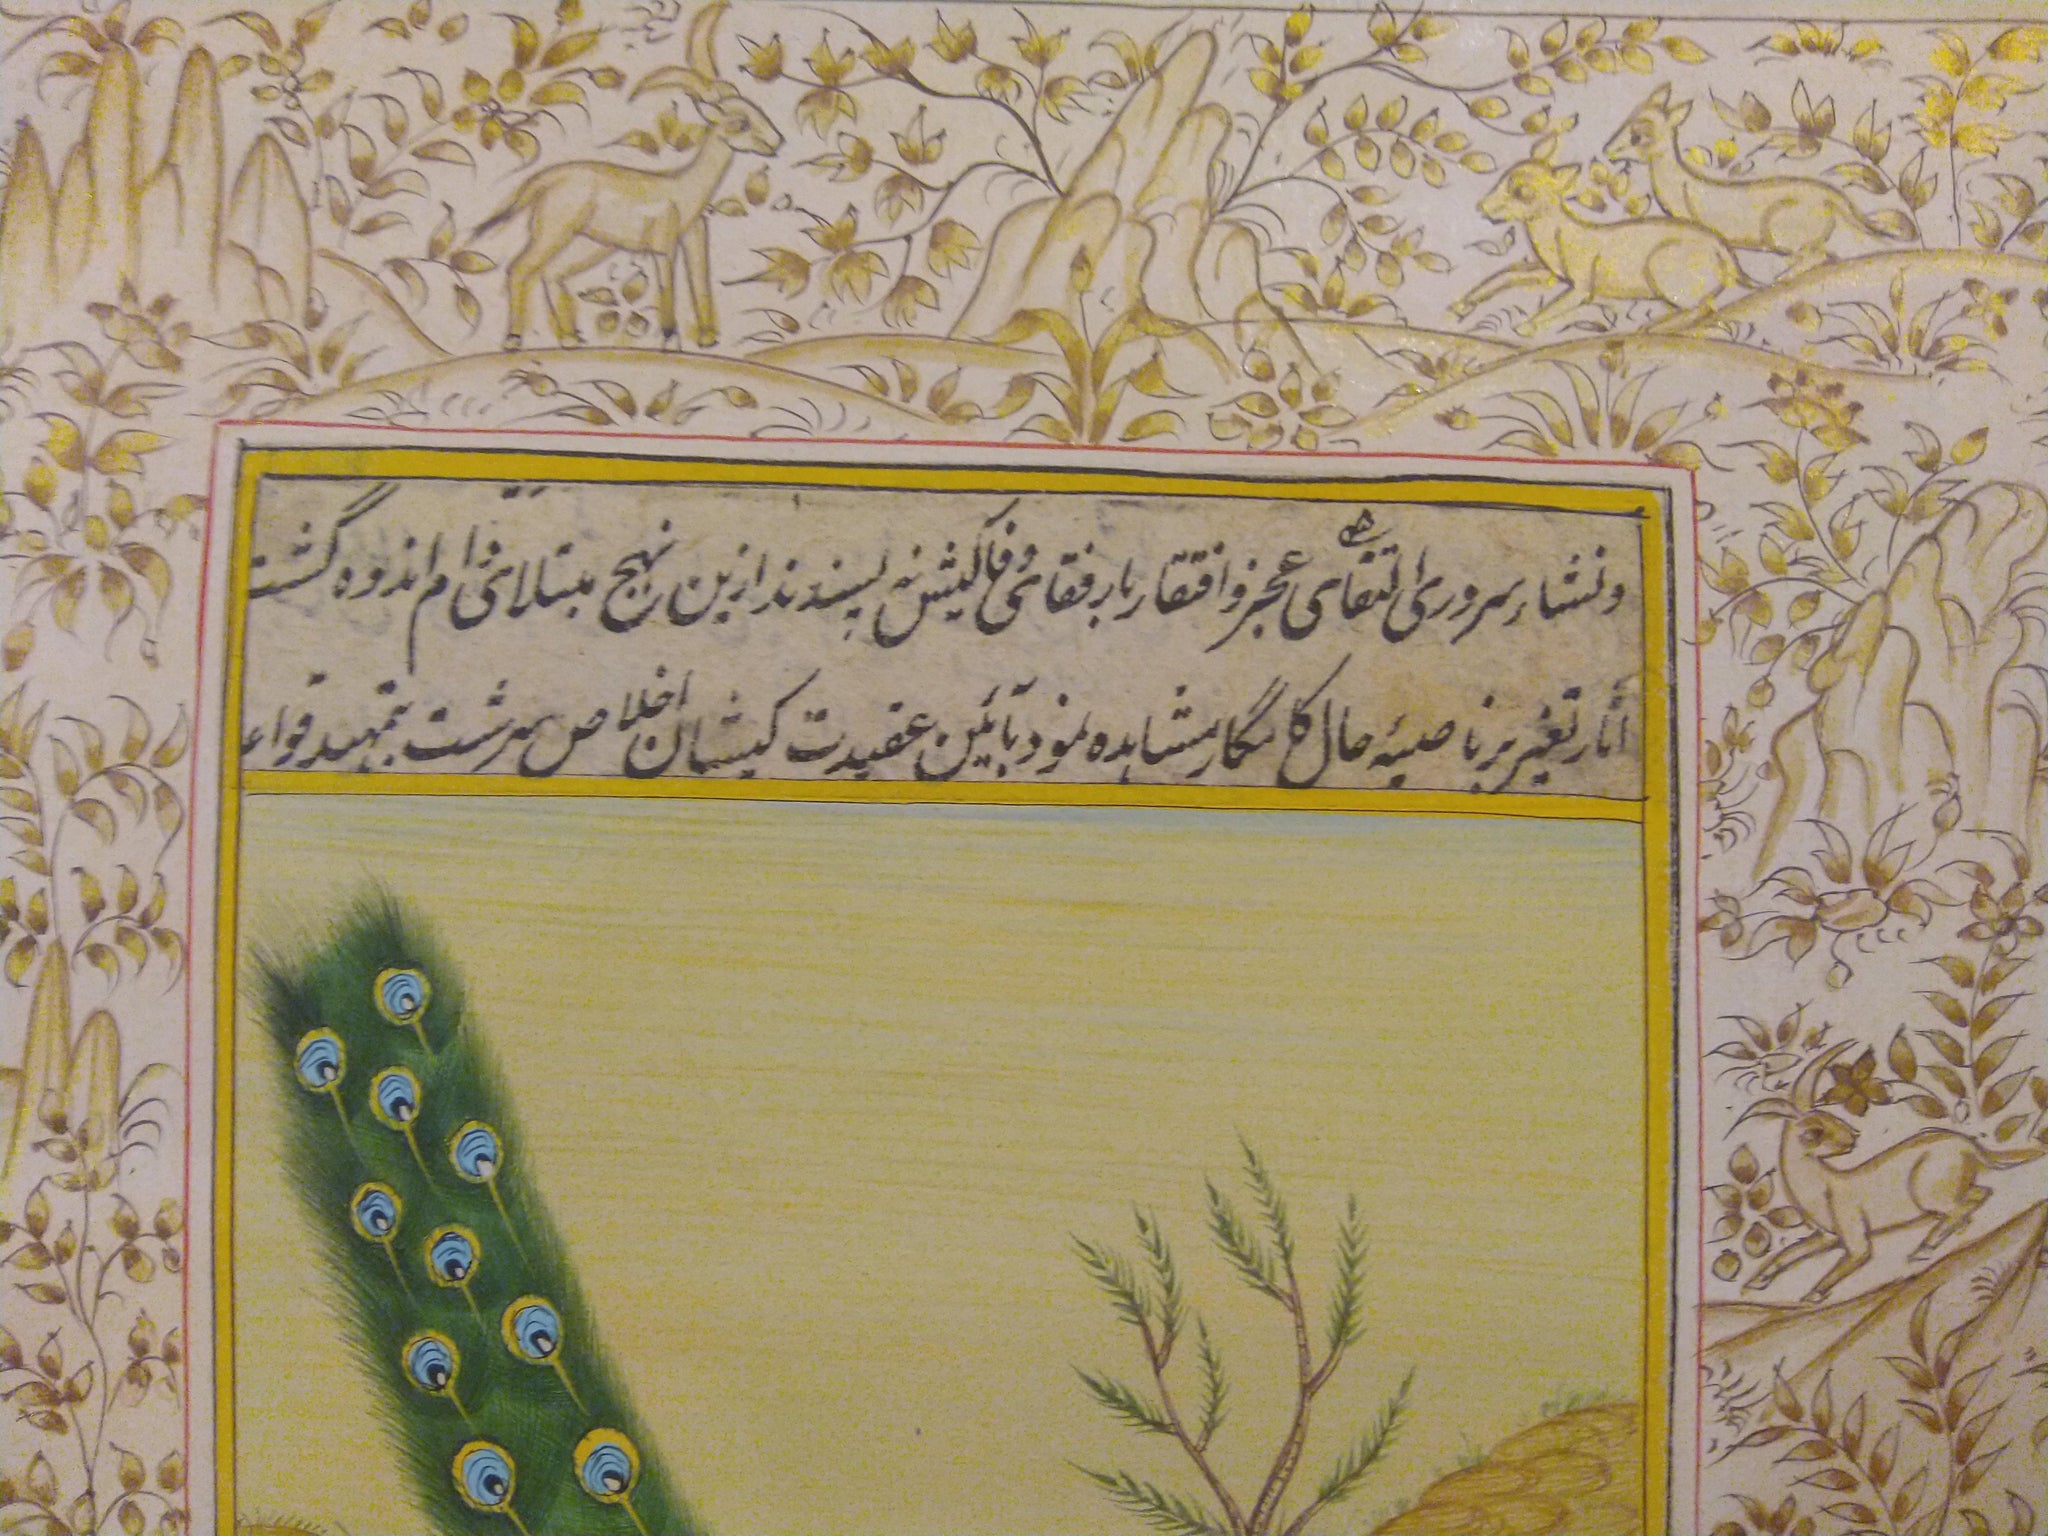 و نشاء سروری التقای عجز و افتقار با رفقای وفا کیش نه پسندند ازین نهج مبتلای دام اندوه گشت
آثار تغیر بر ناصیهٔ حال کامگار مشاهده نمود بآئین عقیدت کیشان اخلاص سرشت بتمهید قواعد